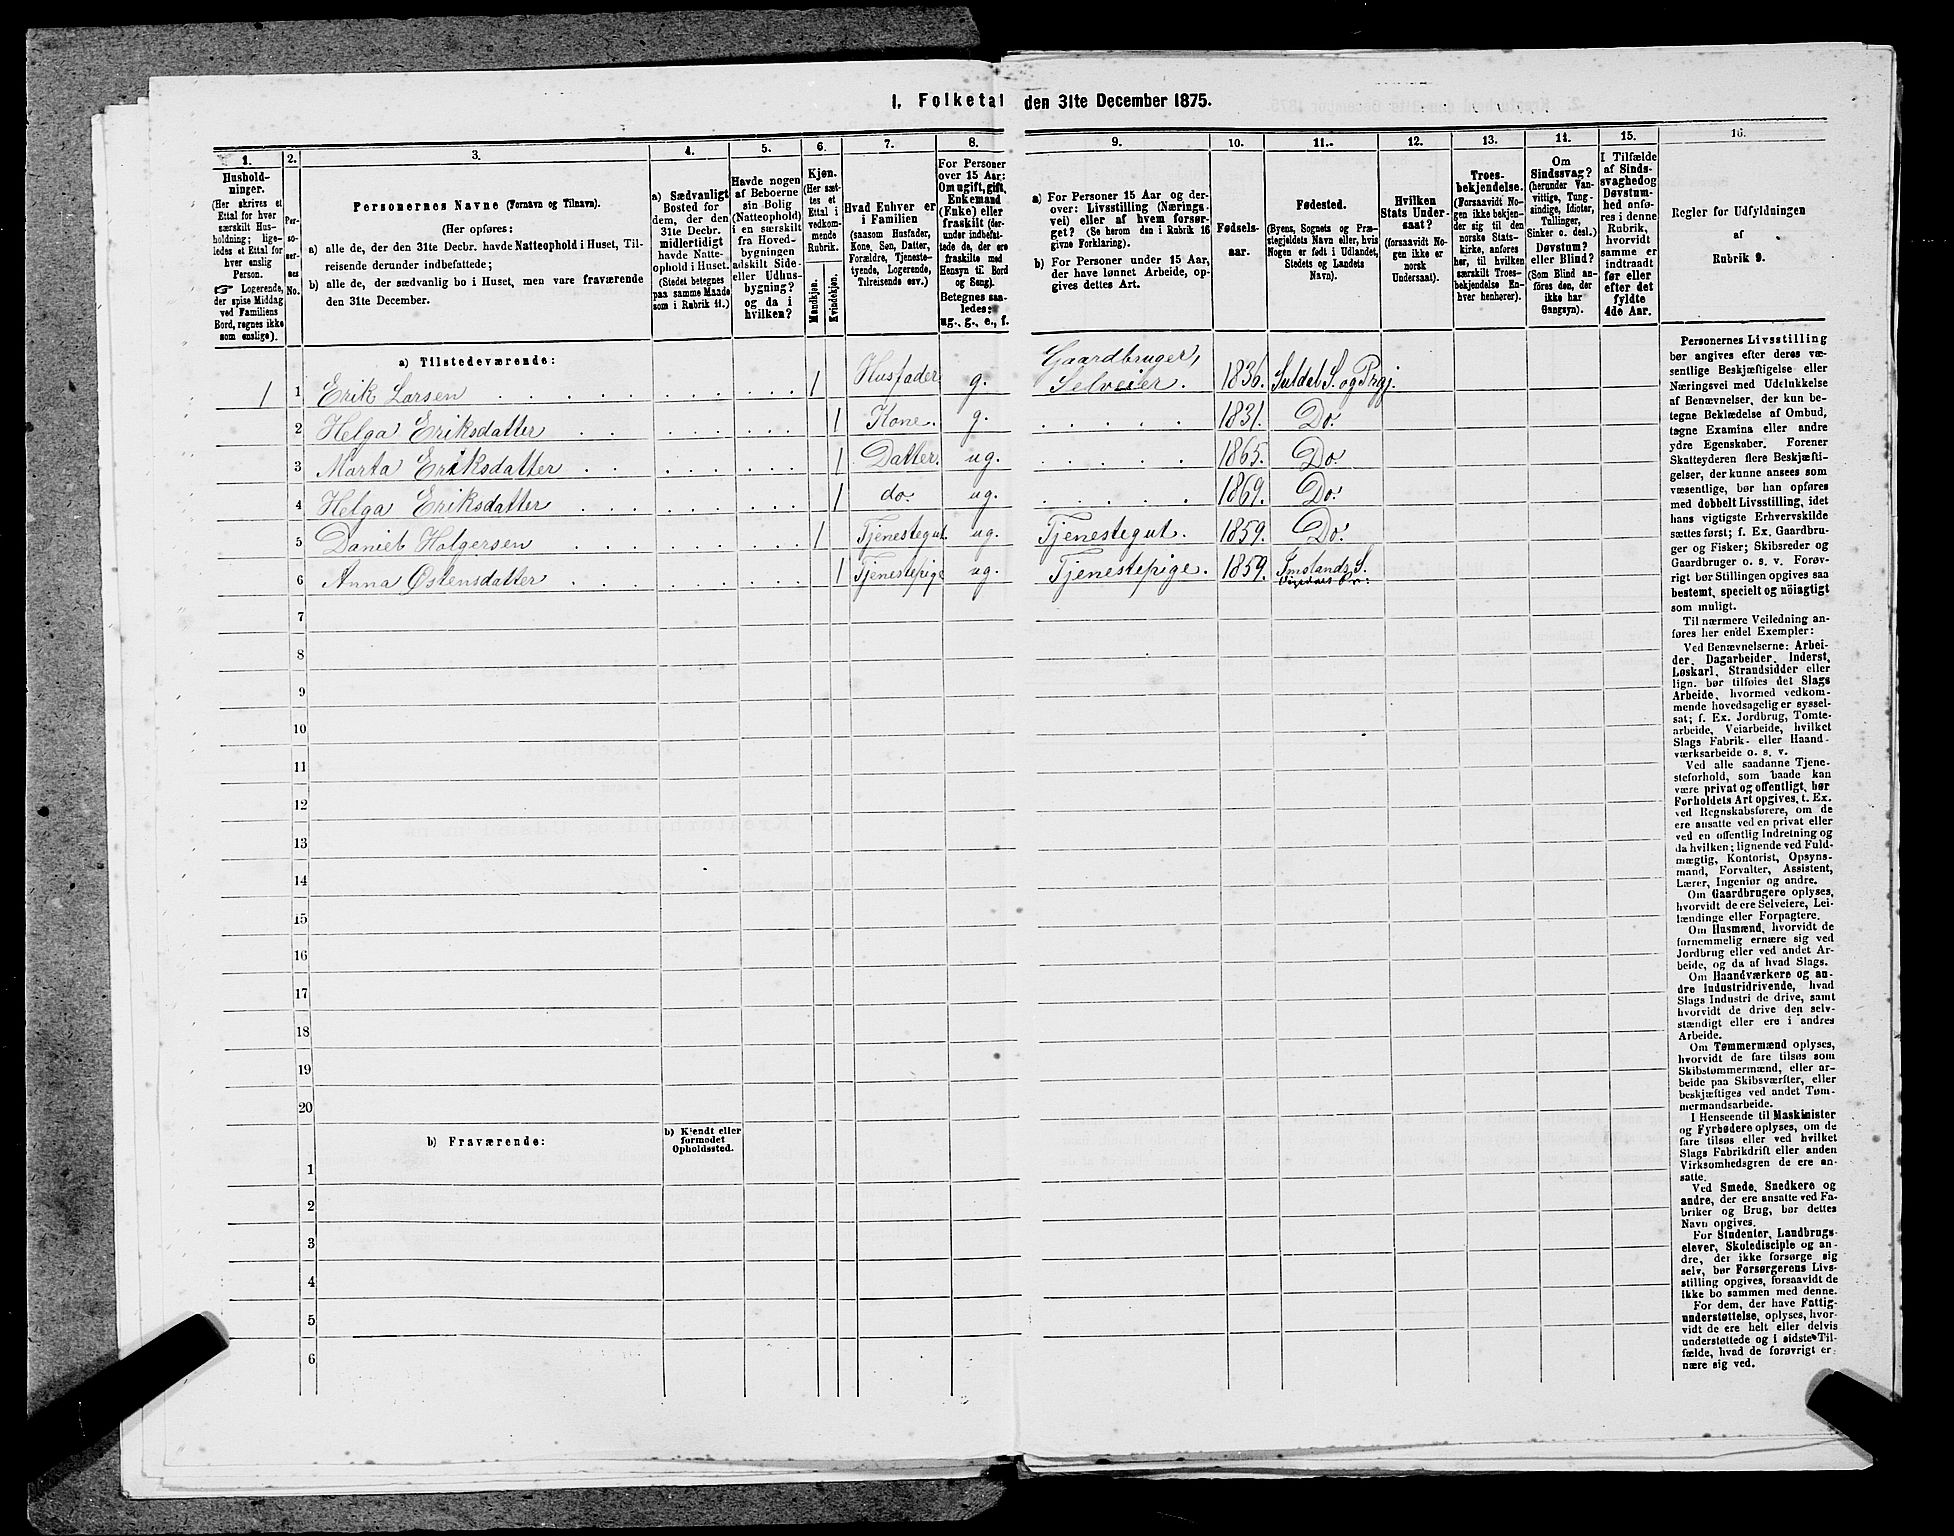 1. Folketal den 31te December 1875.
1.
Hushold-
ninger.
(Her skrives et
Ettal for hver
særskilt Hus-
holdning; lige-
ledes et Ettal for
hver enslig
Person.
☞ Logerende,
der spise Middag
ved Familiens
Bord, regnes ikke
som enslige).
2.
Per-
so-
ner-
nes
No.
3.
Personernes Navne (Fornavn og Tilnavn).
(Her opføres:
a) alle de, der den 31te Decbr. havde Natteophold i Huset, Til-
reisende derunder indbefattede;
b) alle de, der sædvanlig bo i Huset, men vare fraværende
den 31te December.
4.
a) Sædvanligt
Bosted for
dem, der den
31te Decbr.
midlertidigt
havde Natte-
ophold i Huset.
(Stedet betegnes
paa samme Maade
som i Rubrik 11.)
5.
Havde nogen
af Beboerne
sin Bolig
(Natteophold)
i en særskilt
fra Hoved-
bygningen
adskilt Side-
eller Udhus-
bygning?
og da i
hvilken?
6.
Kjøn.
(Her sæt-
tes et
Ettal i
vedkom-
mende
Rubrik.
Mandkjøn.
Kvindekjøn.
7.
Hvad Enhver er
i Familien
(saasom Husfader,
Kone, Søn, Datter,
Forældre, Tjeneste-
tyende, Logerende,
Tilreisende osv.)
8.
For Personer
over 15 Aar:
Om ugift, gift,
Enkemand
(Enke) eller
fraskilt (der-
under indbefat-
tede de, der ere
fraskilte med
Hensyn til Bord
og Seng).
Betegnes saa-
ledes:
ug., g., e., f.
9.
a) For Personer 15 Aar og der-
over: Livsstilling (Nærings-
vei) eller af hvem forsør-
get? (Se herom den i Rubrik 16
givne Forklaring).
b) For Personer under 15 Aar,
der have lønnet Arbeide, op-
gives dettes Art.
10.
Fødsels-
aar.
11.
Fødested.
(Byens, Sognets og Præ-
stegjeldets Navn eller, hvis
Nogen er født i Udlandet,
Stedets og Landets
Navn).
12.
Hvilken
Stats Under-
saat?
(forsaavidt No-
gen ikke er
norsk
Undersaat).
13.
Troes-
bekjendelse.
(Forsaavidt No-
gen ikke bekjen-
der sig til den
norske Stats-
kirke, anføres
her, til hvilken
særskilt Troes-
bekjendelse En-
hver henhører).
14.
Om
Sindssvag?
(herunder Van-
vittige, Tung-
sindige, Idioter,
Tullinger,
Sinker o. desl.)
Døvstum?
eller Blind?
(Som Blind an-
føres den, der
ikke har
Gangsyn).
15.
I Tilfælde
af Sinds-
svaghed og
Døvstum-
hed anfø-
res i denne
Rubrik,
hvorvidt
samme er
indtraadt
før eller
efter det
fyldte
4de Aar.
16.
Regler for Udfyldningen
af
Rubrik 9.
a) Tilstedeværende:
1 1 Erik Larsen 1 Husfader g. Gaardbruger, Selveier. 1836. Suldal S. og Prgj.
2 Helga Eriksdatter 1 Kone. g. 1831. Do.
3 Marta Eriksdatter 1 Datter. ug. 1865. Do.
4 Helga Eriksdatter 1 do. ug. 1869. Do.
5 Daniel Holgersen 1 Tjenestegut. ug. Tjenestegut. 1859. Do.
6 Anna Østensdatter 1 Tjenestepige ug. Tjenestepige. 1859. Imslands S.
7
8
9
10
11
12
13
14
15
16
17
18
19
20
b) Fraværende:
b) Kjendt eller
formodet
Opholdssted.
1
2
3
4
5
6
Personernes Livsstilling
bør angives efter deres væ-
sentlige Beskjæftigelse eller
Næringsvei med Udelukkelse
af Benævnelser, der kun be-
tegne Beklædelse af Ombud,
tagne Examina eller andre
ydre Egenskaber. Forener
Skatteyderen flere Beskjæfti-
gelser, der kunne ansees som
væsentlige, bør han opføres
med dobbelt Livsstilling, idet
hans vigtigste Erhvervskilde
sættes først; f. Ex. Gaardbru-
ger og Fisker; Skibsreder og
Gaardbruger o. s. v. Forøv-
rigt bør Stillingen opgives saa
bestemt, specielt og nöiagtigt
som muligt.
Til nærmere Veiledning an-
føres her endel Exempler:
Ved Benævnelserne: Arbei-
der, Dagarbeider, Inderst,
Løskarl, Strandsidder eller
lign. bør tilføies det Slags
Arbeide, hvormed vedkom-
mende hovedsagelig er syssel-
sat; f. Ex. Jordbrug, Tomte-
arbeide, Veiarbeide, hvilket
Slags Fabrik- eller Haand-
værksarbeide o. s. v.
Ved alle saadanne Tjene-
steforhold, som baade kan
være privat og offentligt, bør
Forholdets Art opgives, t. Ex.
ved Regnskabsførere, om de
ere ansatte ved en privat eller
ved en offentlig Indretning og
da hvilken; lignende ved Fuld-
mægtig, Kontorist, Opsyns-
mand, Forvalter, Assistent,
Lærer, Ingeniør og andre.
Om Gaardbrugere oplyses,
hvorvidt de ere Selveiere, Lei-
lændinge eller Forpagtere.
Om Husmænd, hvorvidt de
fornemmelig ernære sig ved
Jordbrug eller ved andet Ar-
beide, og da af hvad Slags.
Om Haandværkere og an-
dre Industridrivende, hvad
Slags Industri de drive, samt
hvorvidt de drive den selv-
stændigt eller ere i andres
Arbeide.
Om Tømmermænd oplyses,
hvorvidt de fare tilsøs som
Skibstømmermænd, eller ar-
beide paa Skibsværfter, eller
beskjæftiges ved andet Tøm-
mermandsarbeide.
I Henseende til Maskinister
og Fyrbødere oplyses, om de
fare tilsøs eller ved hvilket
Slags Fabrikdrift eller anden
Virksomhedsgren de ere an-
satte.
Ved Smede, Snedkere og
andre, der ere ansatte ved Fa-
briker og Brug, bør dettes
Navn opgives.
For Studenter, Landbrugs-
elever, Skoledisciple og an-
dre, der ikke forsørge sig
selv, bør Forsørgerens Livs-
stilling opgives, forsaavidt de
ikke bo sammen med denne.
For dem, der have Fattig-
understøttelse, oplyses, hvor-
vidt de ere helt eller delvis
understøttede og i sidste Til-
fælde, hvad de forøvrigt er-
nære sig ved.